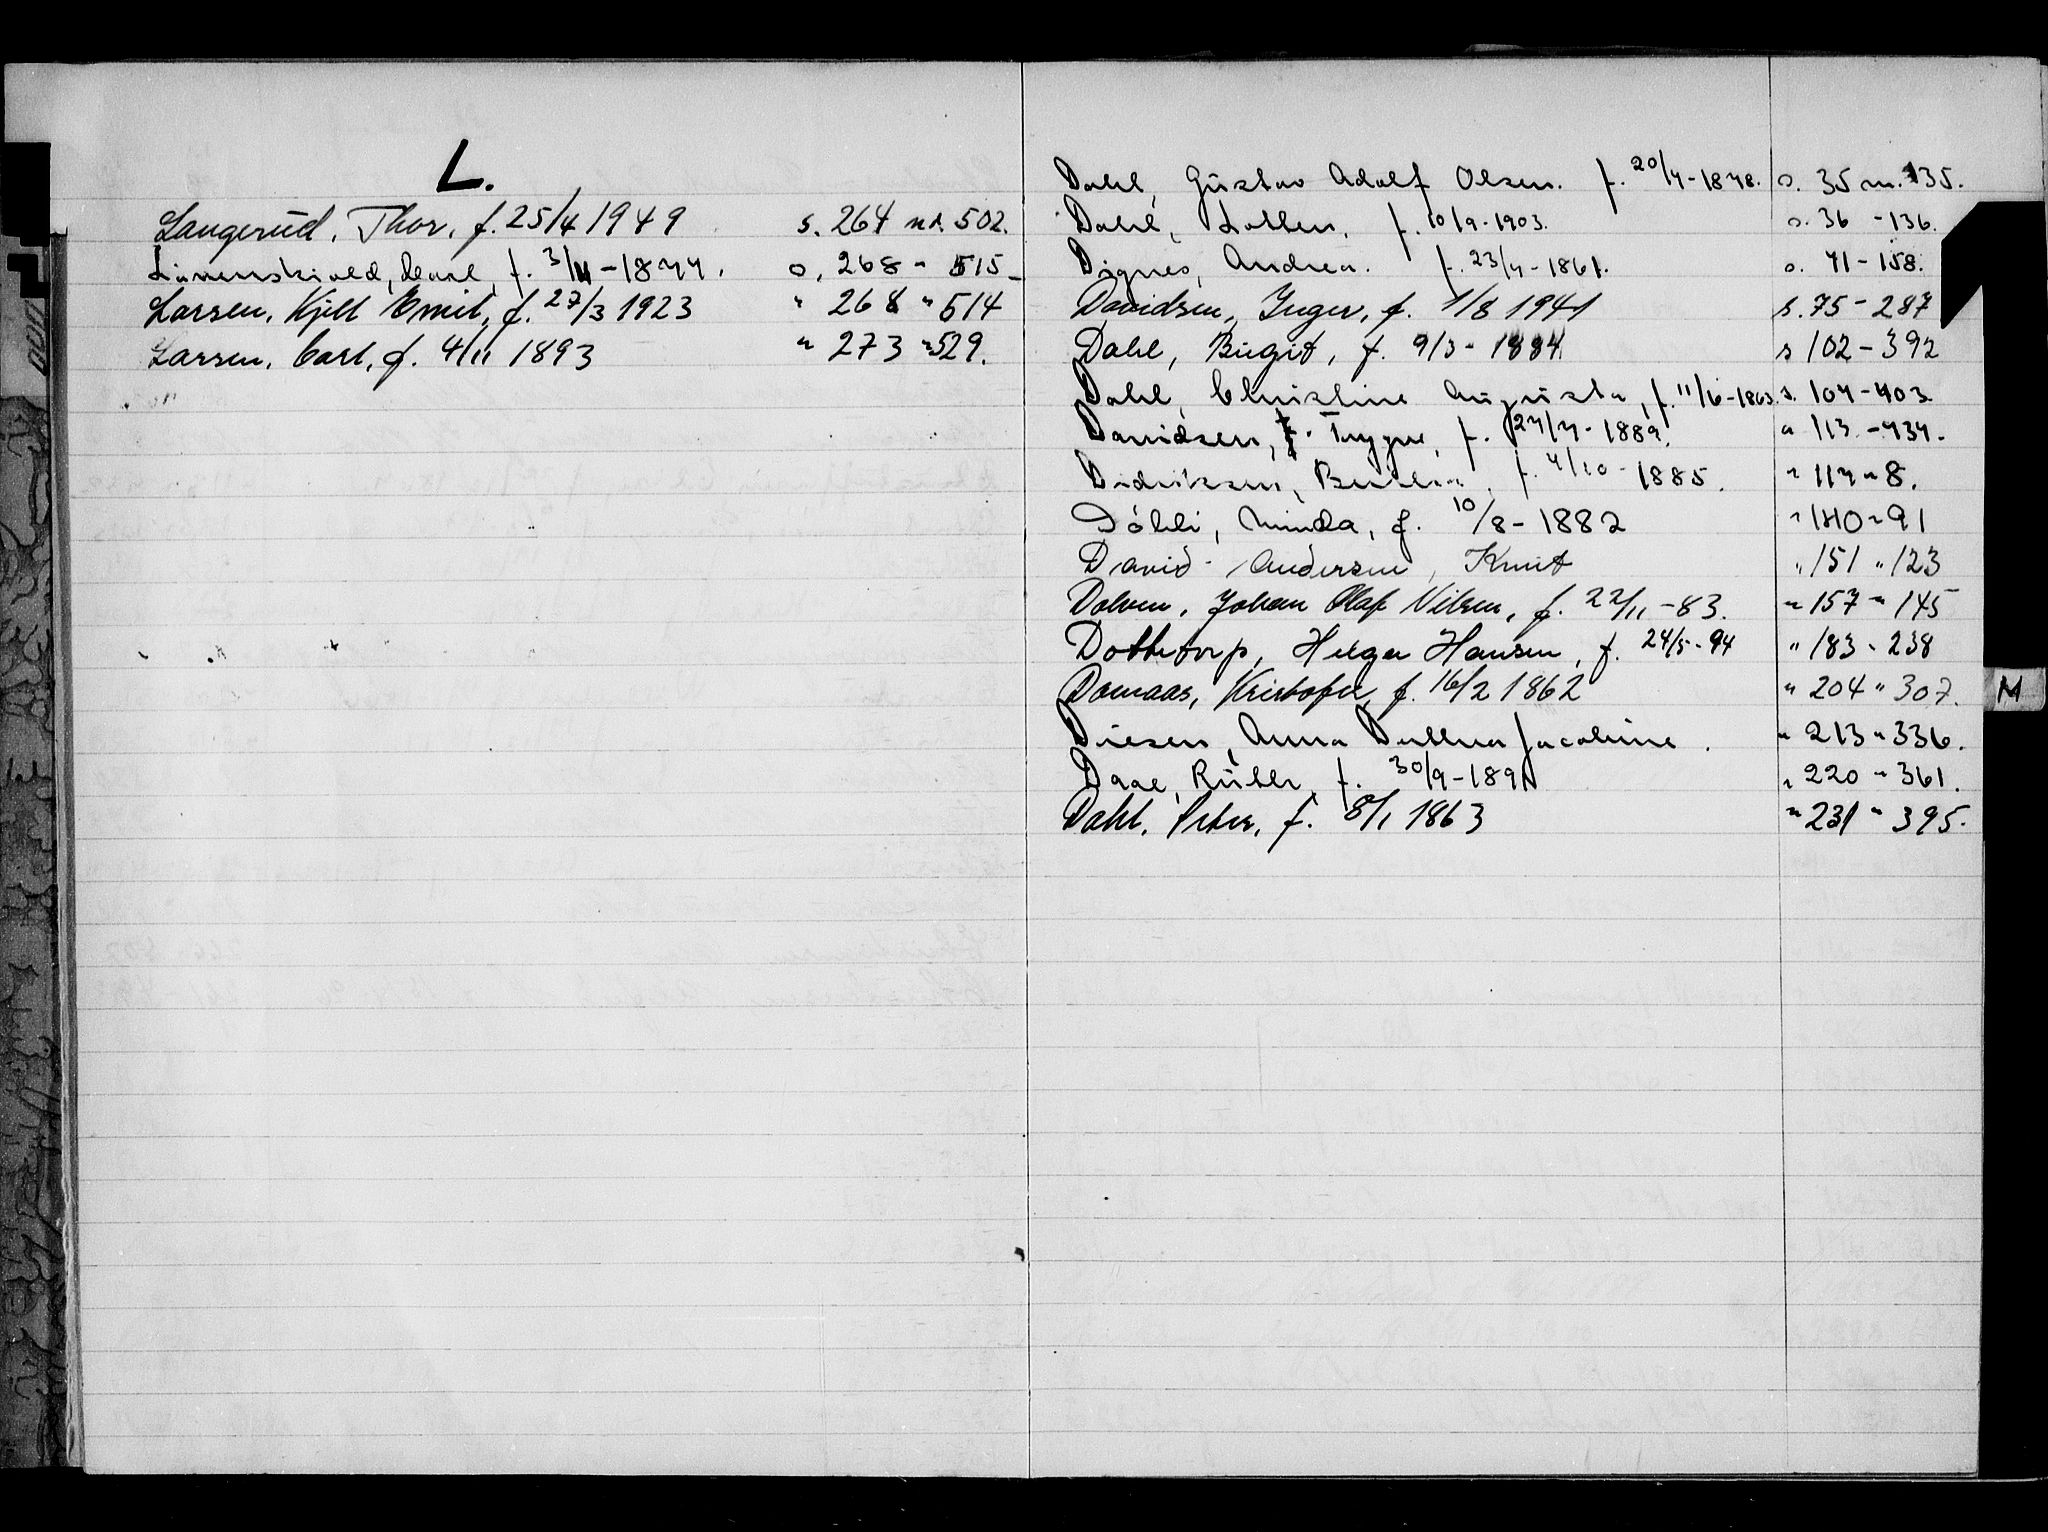 L.
Langerud, Thor, f. 25/4 1949 s. 264 nr. 502.
Løvenskiold, Carl, f. 3/11 - 1877. s. 268 " 515
Larsen, Kjell Emil, f. 27/3 1923 " 268 " 514
Larsen, Carl, f. 4/11 1893 " 273 " 529.
Dahl, Gustav Adolf Olsen. f. 20/4 - 1878. s. 35 nr. 135.
Dahl, Lotten, f. 10/9 - 1903. s. 36 - 136.
Dignes, Andrea. f. 23/4 - 1861. s. 41 - 158.
Davidsen, Inger, f. 1/8 1941 s. 75 - 287
Dahl, Birgit, f. 9/3 - 1884 s 102 - 392
Dahl, Christine Augusta, f. 11/6 - 1863. s. 104 - 403
Davidsen, Trygve, f. 24/4 - 1889. " 113 - 434.
Didriksen, f. 4/10 - 1885. " 114 " 8.
Döhli, Minda, f. 10/8 - 1882 " 140 " 91
David - Andersen, Knut " 151 " 123
Dolven, Johan Olaf Nilsen, f. 22/11 - 83. " 157 " 145
Dottetorp, Helga Hansen, f. 24/5 - 94 " 183 - 238
Domaas, Kristofer, f. 16/2 1862 " 204 " 307.
Diesen, Anna Jacobine. " 213 " 336.
Daae, Ruth, f. 30/9 - 1891 " 220 " 361.
Dahl, Peter, f. 8/1 1863 " 231 " 395.
M